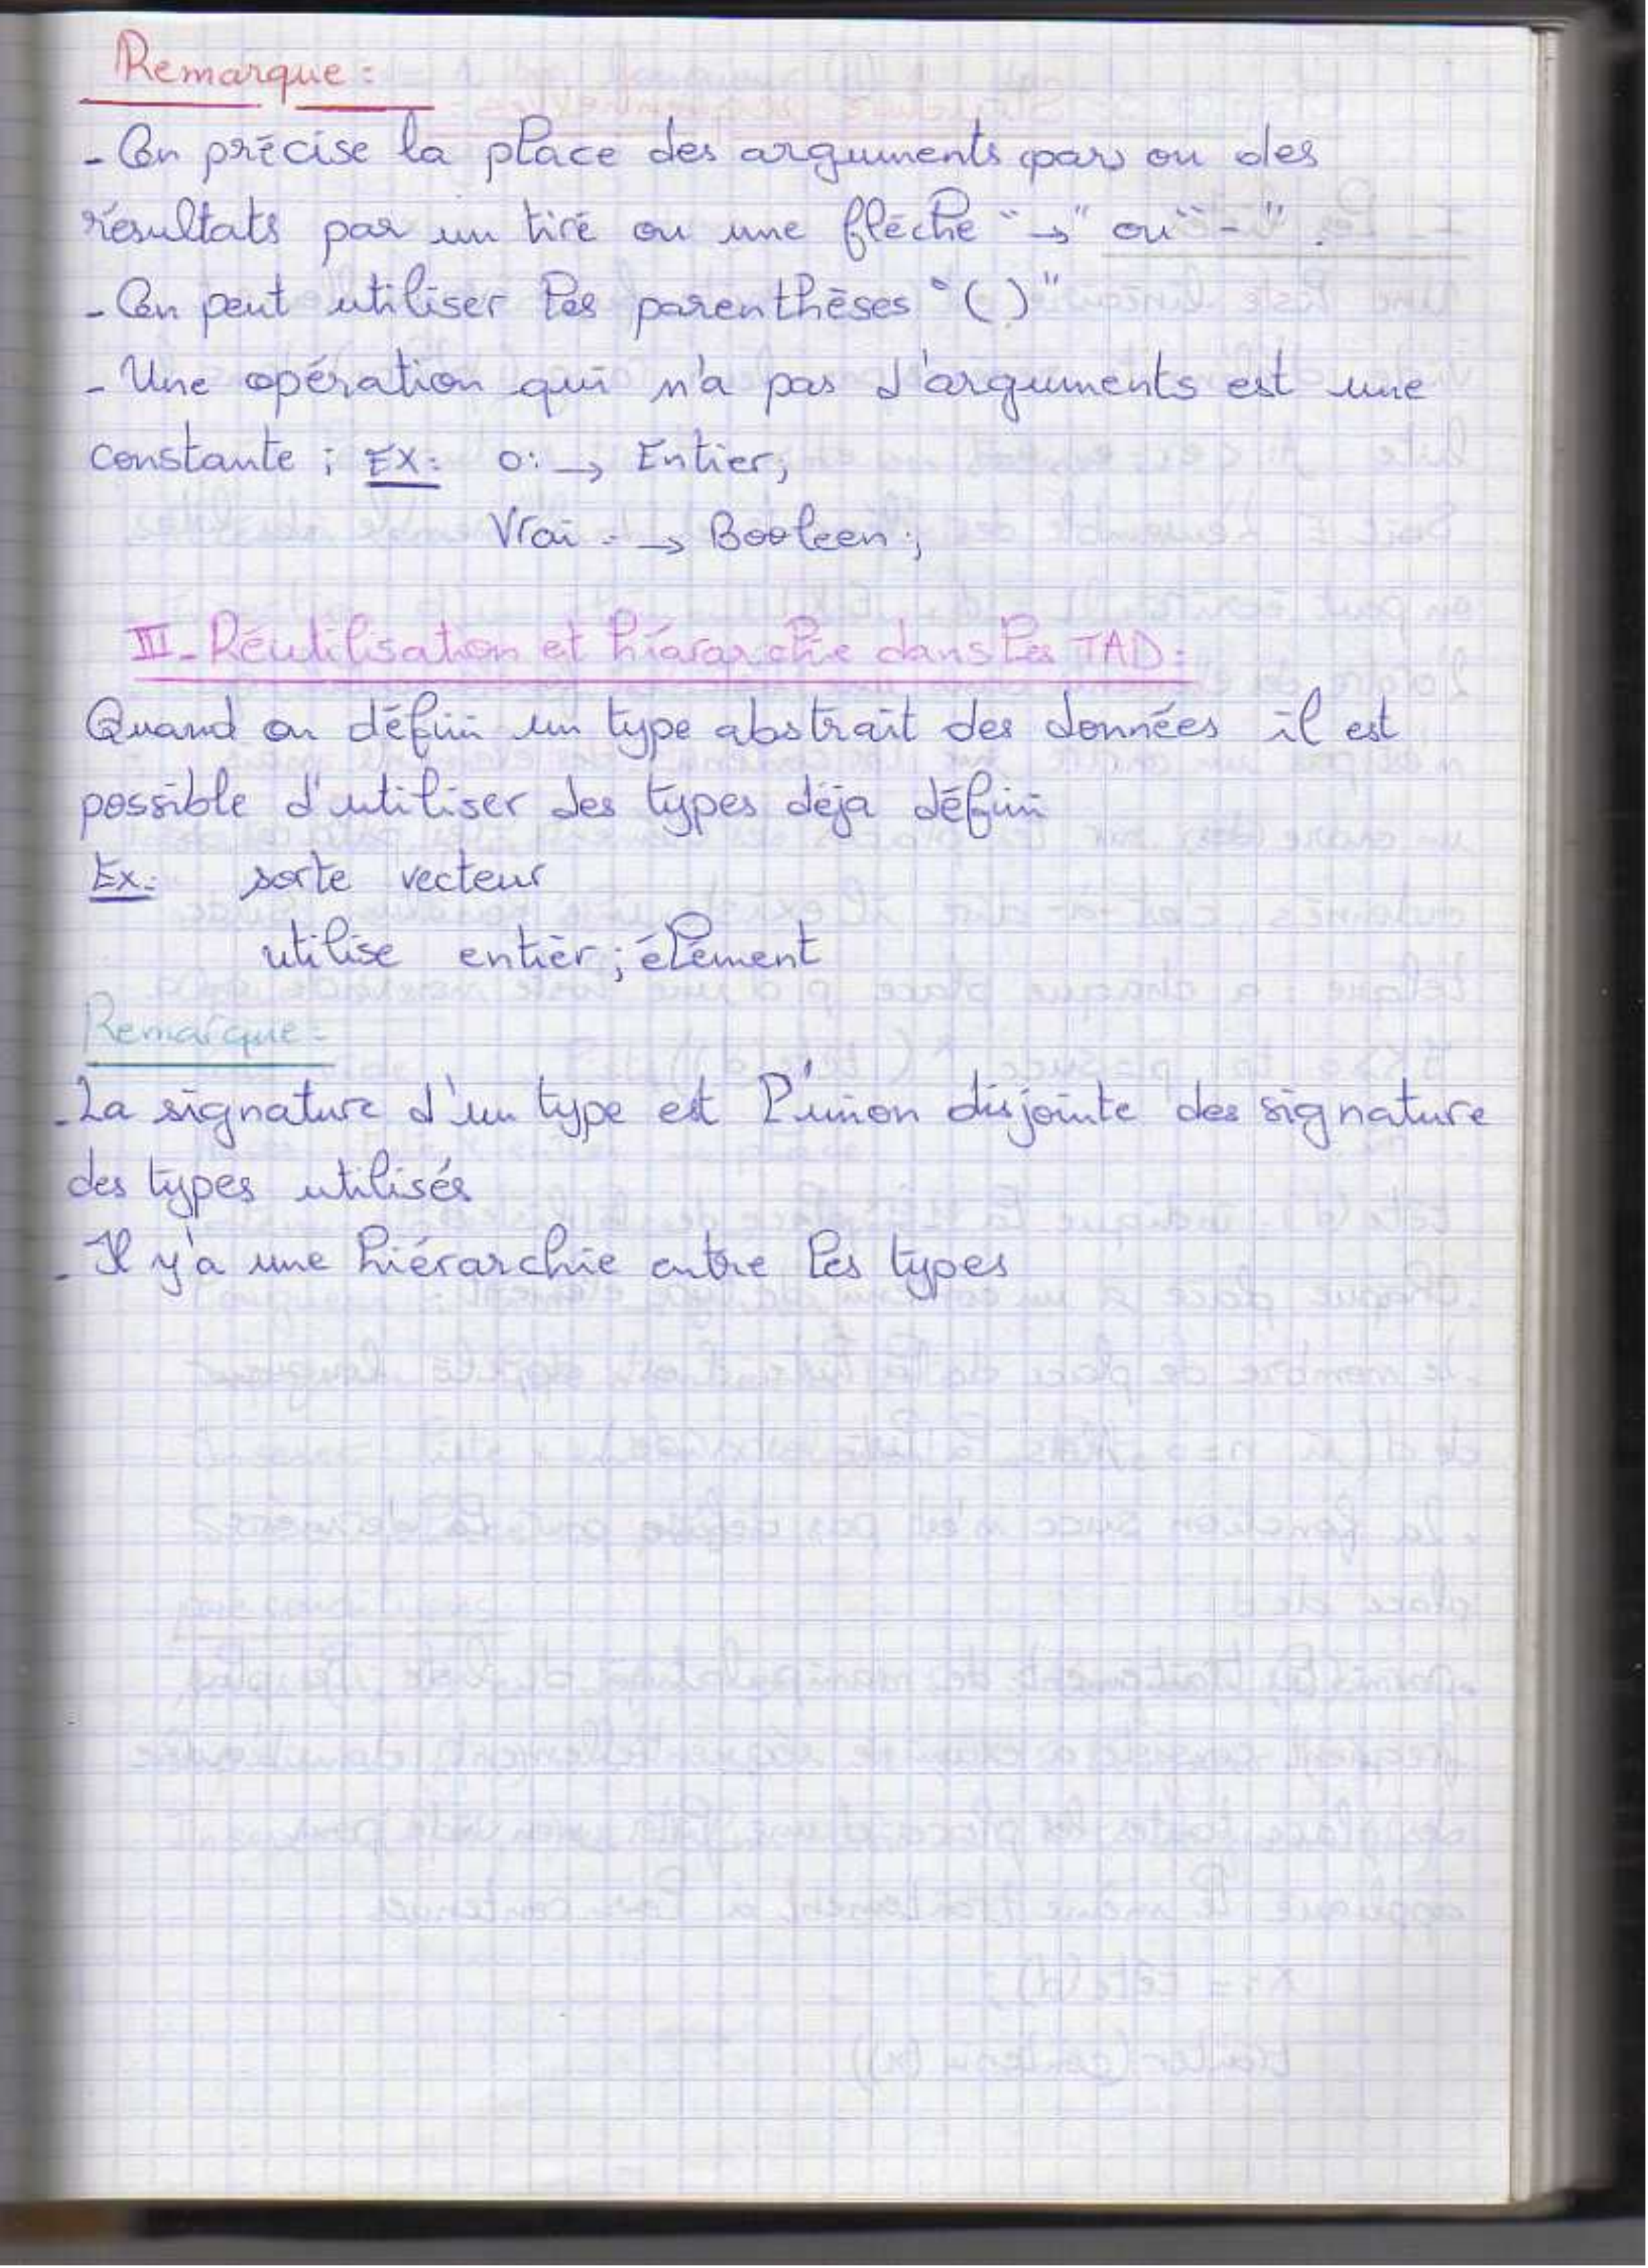 Remarque :
- On précise la place des arguments (par) ou des
résultats par un tiré ou une fléche "→" ou "-" .
- On peut utiliser les parenthèses "( )"
- Une opération qui n'a pas d'arguments est une
constante ; EX: o: → Entier;
Vrai : → Booleen ;
III- Réutilisation et hiérarchie dans les TAD:
Quand on définir un type abstrait des données il est
possible d'utiliser des types déja définir
Ex: sorte vecteur
utilise entièr ; élément
Remarque :
- La signature d'un type est l'union disjointe des signature
des types utilisés
- Il y'a une hiérarchie entre les types